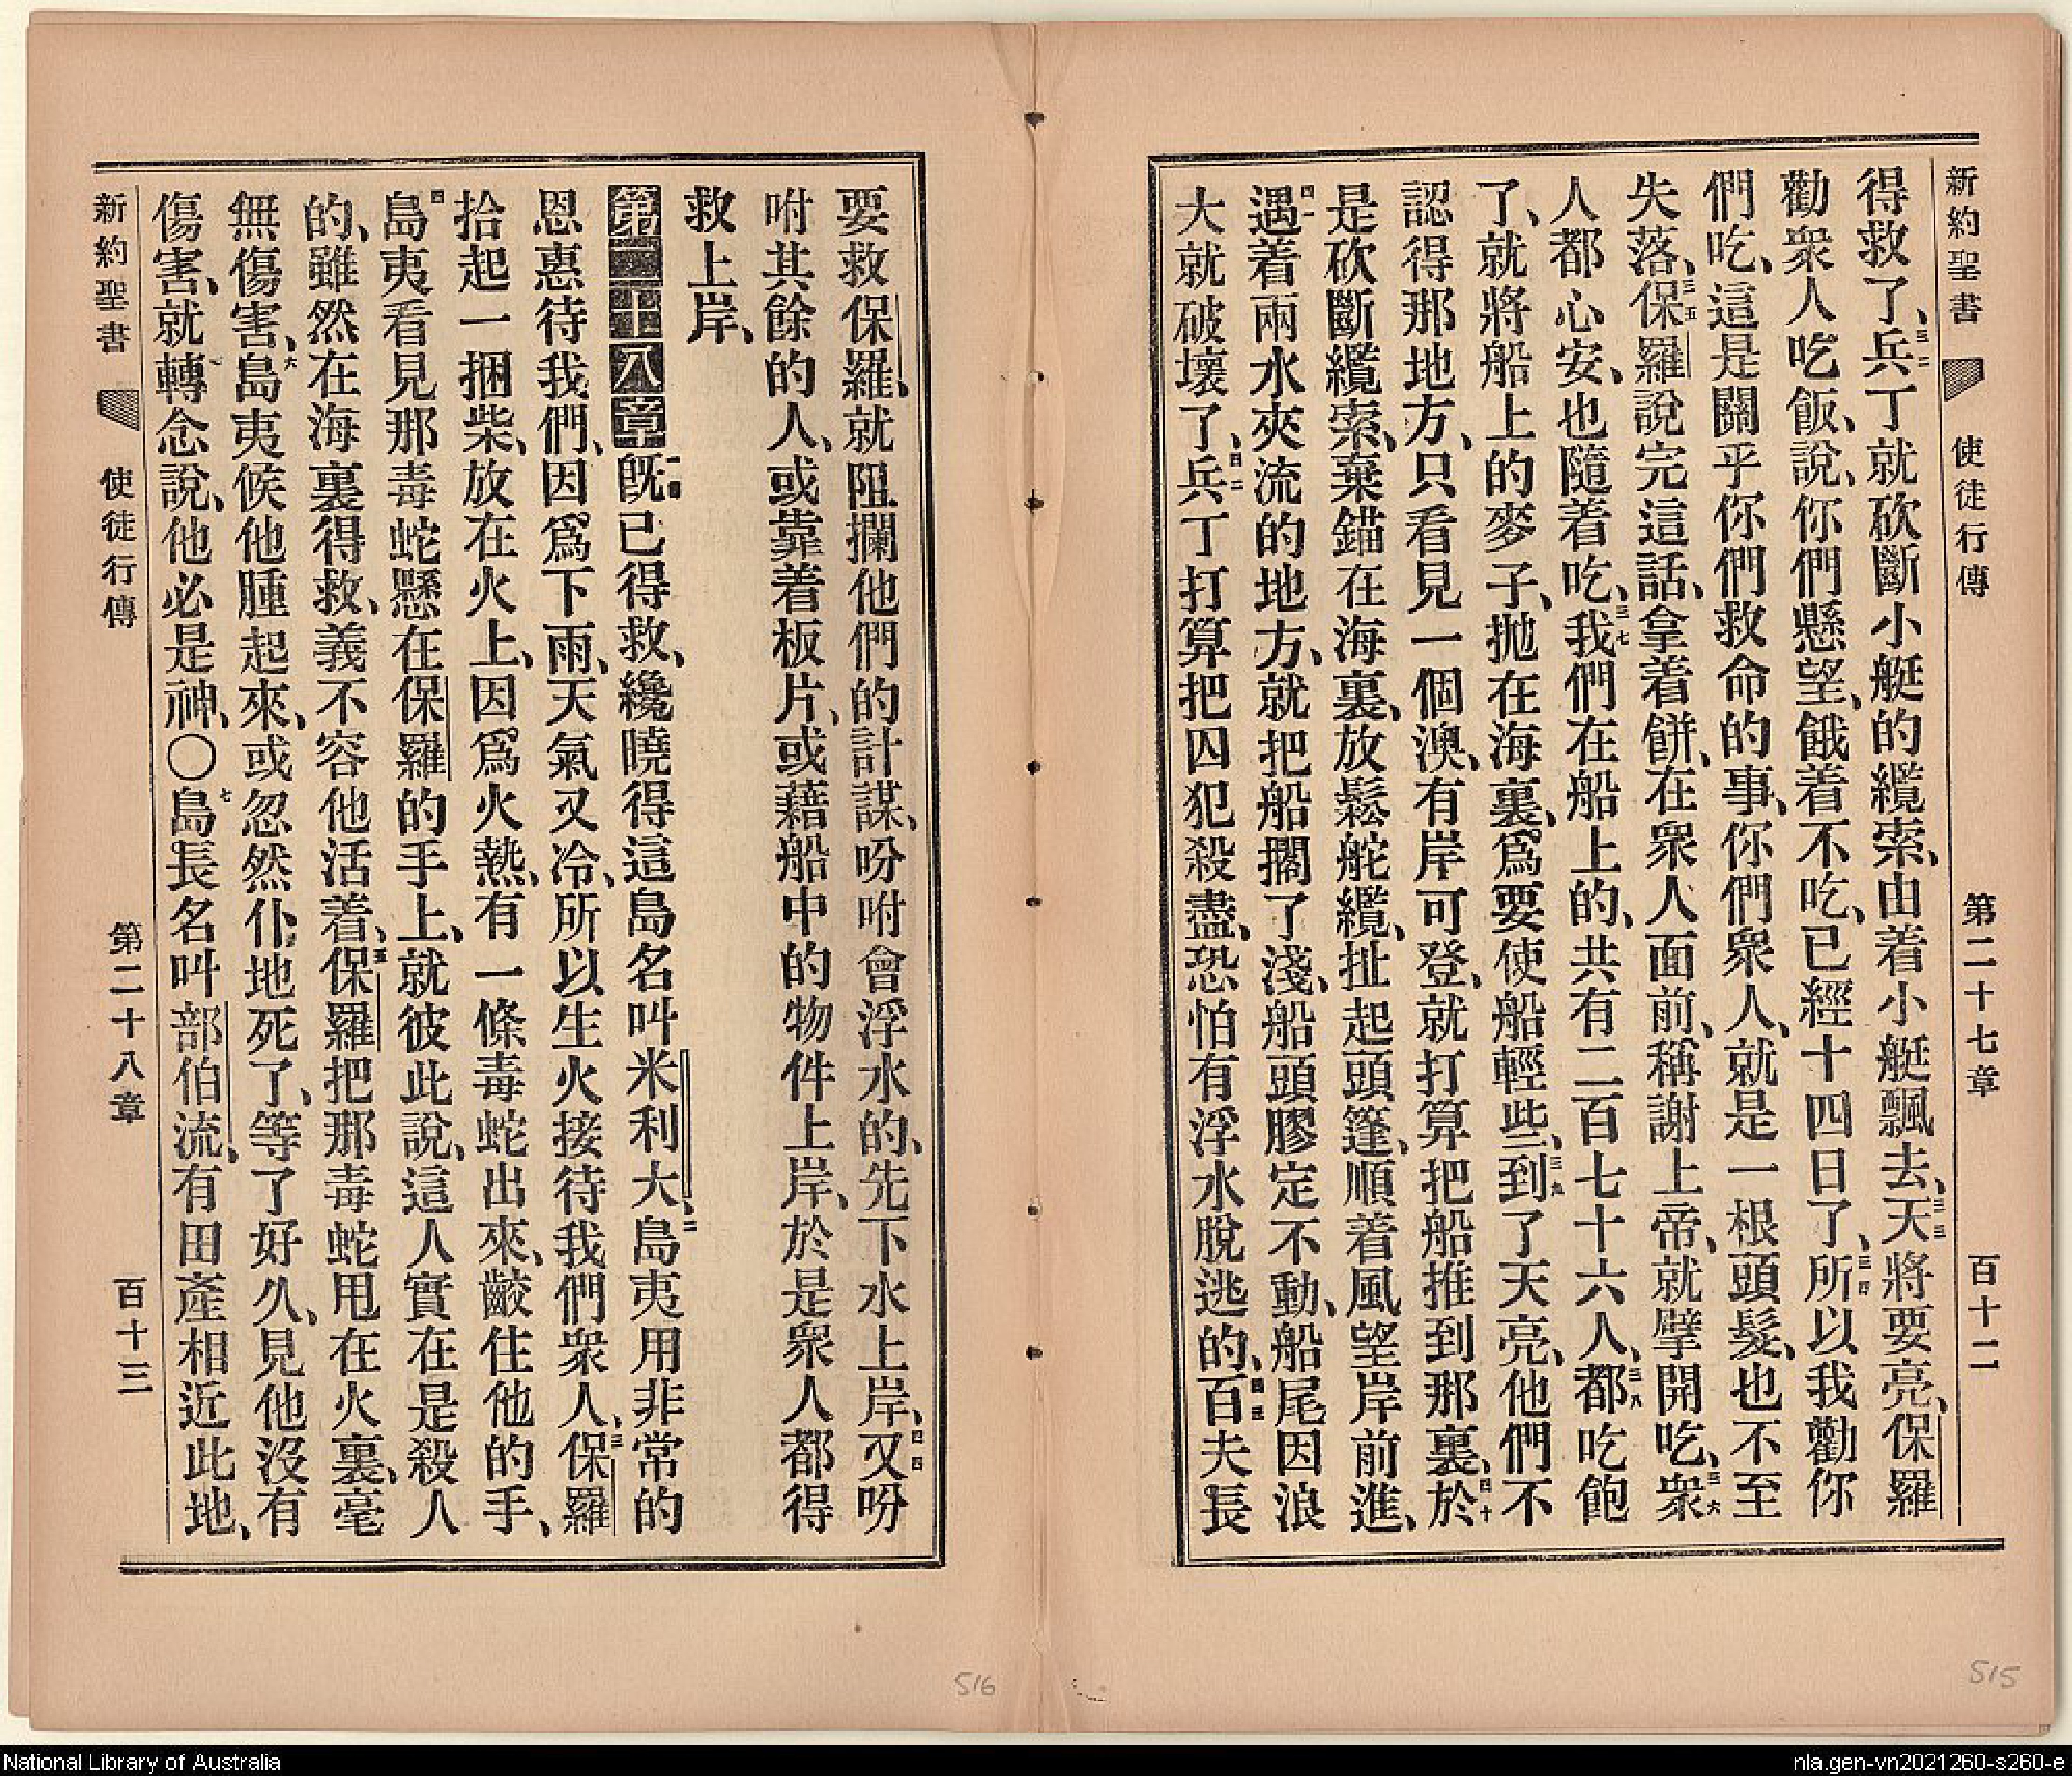 新約聖書 使徒行傳 第二十七章 百十二
得救了、三二兵丁就砍斷小艇的纜索、由着小艇飄去、三三天將要亮、保羅
勸衆人吃飯、說、你們懸望、餓着不吃、已經十四日了、三四所以我勸你
們吃、這是關乎你們救命的事、你們衆人、就是一根頭髮、也不至
失落、三五保羅說完這話、拿着餅、在衆人面前、稱謝上帝、就擘開吃、三六衆
人都心安、也隨着吃、三七我們在船上的、共有二百七十六人、三八都吃飽
了、就將船上的麥子、拋在海裏、爲要使船輕些、三九到了天亮、他們不
認得那地方、只看見一個澳、有岸可登、就打算把船推到那裏、四十於
是砍斷纜索、棄錨在海裏、放鬆舵纜、扯起頭篷、順着風望岸前進、
四一遇着兩水夾流的地方、就把船擱了淺、船頭膠定不動、船尾因浪
大就破壞了、四二兵丁打算把囚犯殺盡、恐怕有浮水脫逃的、四三百夫長
要救保羅、就阻攔他們的計謀、吩咐會浮水的、先下水上岸、四四又吩
咐其餘的人、或靠着板片、或藉船中的物件上岸、於是衆人都得
救上岸、
第二十八章 一旣已得救、纔曉得這島名叫米利大、二島夷用非常的
恩惠待我們、因爲下雨、天氣又冷、所以生火接待我們衆人、三保羅
拾起一捆柴、放在火上、因爲火熱、有一條毒蛇出來、齩住他的手、
四島夷看見那毒蛇懸在保羅的手上、就彼此說、這人實在是殺人
的、雖然在海裏得救、義不容他活着、五保羅把那毒蛇甩在火裏、毫
無傷害、六島夷候他腫起來、或忽然仆地死了、等了好久、見他沒有
傷害、就轉念說、他必是神、〇七島長名叫部伯流、有田產相近此地、
新約聖書 使徒行傳 第二十八章 百十三
516
515
National Library of Australia
nla.gen-vn2021260-s260-e